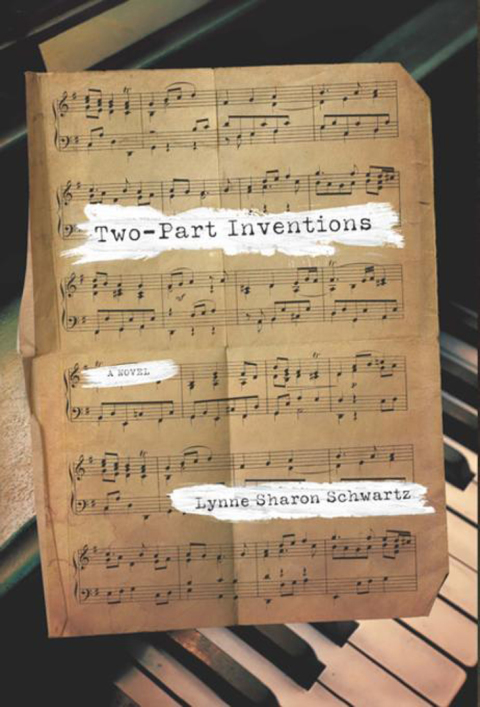 Two-Part Inventions
A NOVEL
Lynne Sharon Schwartz